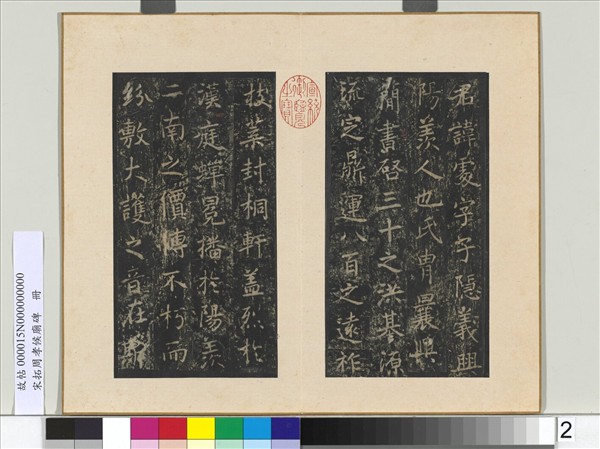 君諱處字子隱義興
陽羨人也氏胄曩興
簡書啓三十之洪基源
流定鼎運八百之遠祚
枝葉封桐軒蓋烈於
漢庭蟬冕播於陽羨
二南之價傳不朽而
紛敷大護之音在
故帖 000015N000000000
宋拓周孝侯廟碑 冊
2